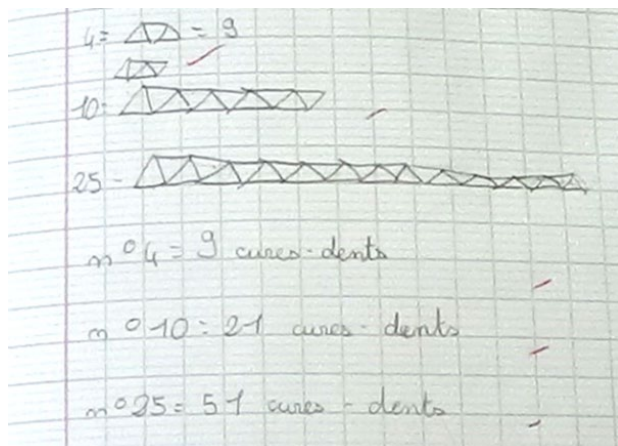 4 = = 9
10:
25 -
n°4 = 9 cures-dents
n°10 = 21 cures-dents
n°25 = 51 cures-dents